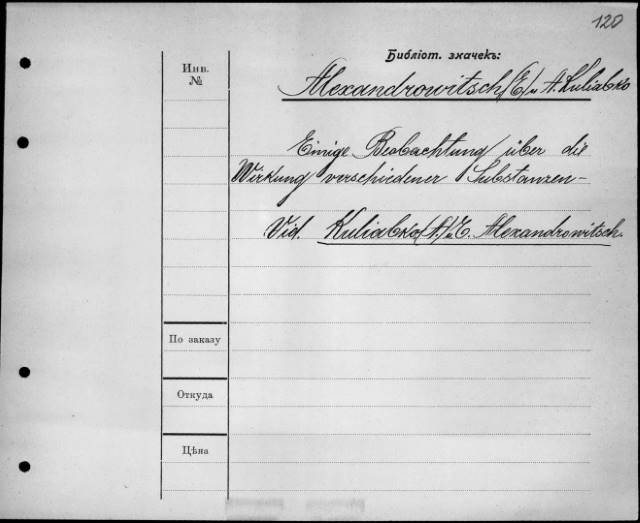 120
Библіот. значекъ:
Инв.
№
Alexandrowitsch (E) u A. Kuliabko
Einige Beobachtung über die
Wirkung verschiedener Substanzen-
Vid. Kuliabko (A.) u E. Alexandrowitsch.
По заказу
Откуда
Цѣна